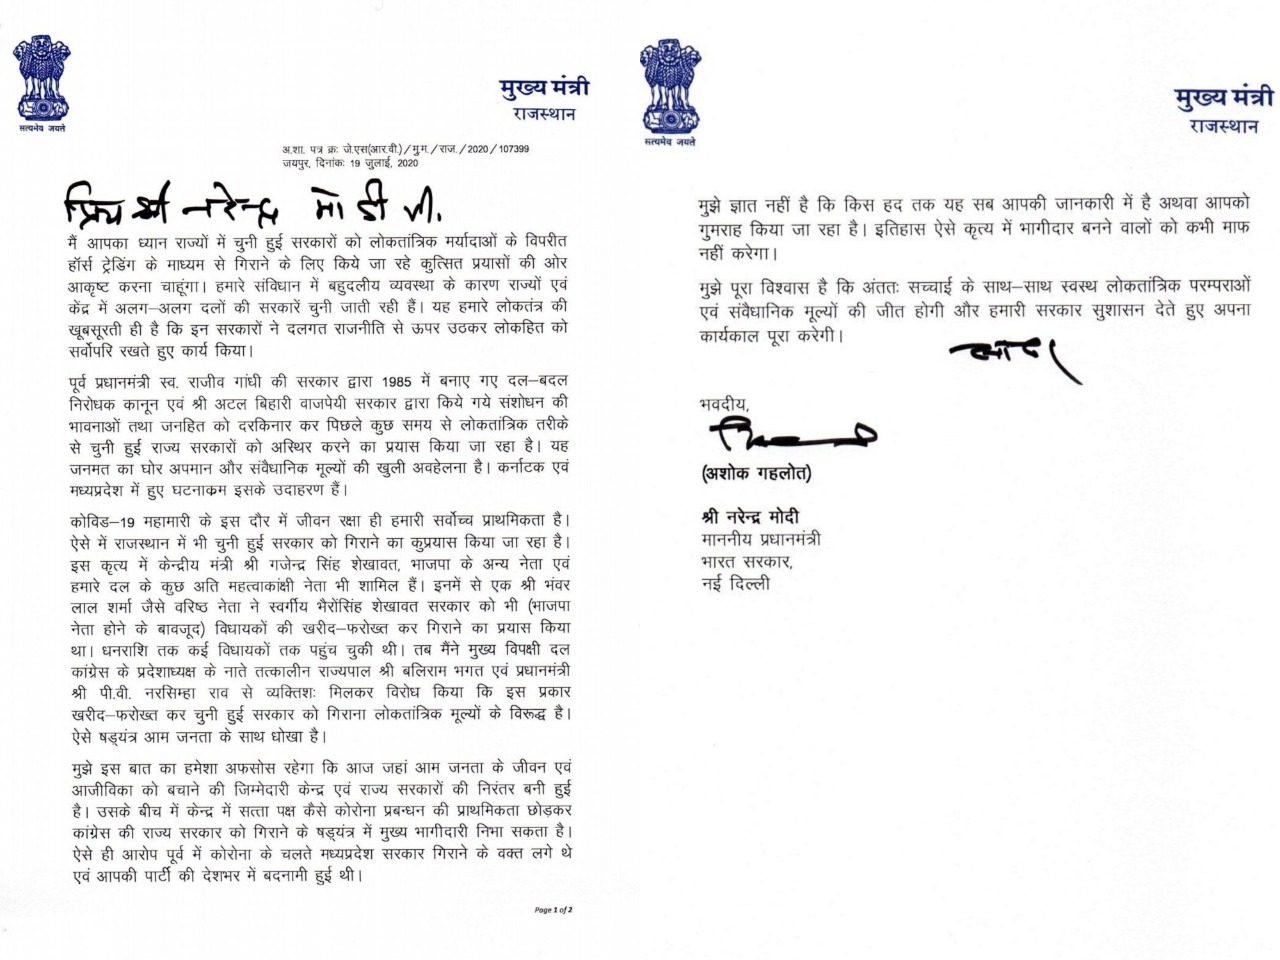 सत्यमेव जयते
मुख्य मंत्री
राजस्थान
अ.शा. पत्र क्र: जे.एस(आर.वी.) / मु.म. / राज. / 2020 / 107399
जयपुर, दिनांक: 19 जुलाई, 2020
प्रिय श्री नरेन्द्र मोदी जी.
मैं आपका ध्यान राज्यों में चुनी हुई सरकारों को लोकतांत्रिक मर्यादाओं के विपरीत
हॉर्स ट्रेडिंग के माध्यम से गिराने के लिए किये जा रहे कुत्सित प्रयासों की ओर
आकृष्ट करना चाहूंगा। हमारे संविधान में बहुदलीय व्यवस्था के कारण राज्यों एवं
केंद्र में अलग–अलग दलों की सरकारें चुनी जाती रही हैं। यह हमारे लोकतंत्र की
खूबसूरती ही है कि इन सरकारों ने दलगत राजनीति से ऊपर उठकर लोकहित को
सर्वोपरि रखते हुए कार्य किया।
पूर्व प्रधानमंत्री स्व. राजीव गांधी की सरकार द्वारा 1985 में बनाए गए दल–बदल
निरोधक कानून एवं श्री अटल बिहारी वाजपेयी सरकार द्वारा किये गये संशोधन की
भावनाओं तथा जनहित को दरकिनार कर पिछले कुछ समय से लोकतांत्रिक तरीके
से चुनी हुई राज्य सरकारों को अस्थिर करने का प्रयास किया जा रहा है। यह
जनमत का घोर अपमान और संवैधानिक मूल्यों की खुली अवहेलना है। कर्नाटक एवं
मध्यप्रदेश में हुए घटनाक्रम इसके उदाहरण हैं।
कोविड–19 महामारी के इस दौर में जीवन रक्षा ही हमारी सर्वोच्च प्राथमिकता है।
ऐसे में राजस्थान में भी चुनी हुई सरकार को गिराने का कुप्रयास किया जा रहा है।
इस कृत्य में केन्द्रीय मंत्री श्री गजेन्द्र सिंह शेखावत, भाजपा के अन्य नेता एवं
हमारे दल के कुछ अति महत्वाकांक्षी नेता भी शामिल हैं। इनमें से एक श्री भंवर
लाल शर्मा जैसे वरिष्ठ नेता ने स्वर्गीय भैरोंसिंह शेखावत सरकार को भी (भाजपा
नेता होने के बावजूद) विधायकों की खरीद–फरोख्त कर गिराने का प्रयास किया
था। धनराशि तक कई विधायकों तक पहुंच चुकी थी। तब मैंने मुख्य विपक्षी दल
कांग्रेस के प्रदेशाध्यक्ष के नाते तत्कालीन राज्यपाल श्री बलिराम भगत एवं प्रधानमंत्री
श्री पी.वी. नरसिम्हा राव से व्यक्तिशः मिलकर विरोध किया कि इस प्रकार
खरीद–फरोख्त कर चुनी हुई सरकार को गिराना लोकतांत्रिक मूल्यों के विरूद्ध है।
ऐसे षड्यंत्र आम जनता के साथ धोखा है।
मुझे इस बात का हमेशा अफसोस रहेगा कि आज जहां आम जनता के जीवन एवं
आजीविका को बचाने की जिम्मेदारी केन्द्र एवं राज्य सरकारों की निरंतर बनी हुई
है। उसके बीच में केन्द्र में सत्ता पक्ष कैसे कोरोना प्रबन्धन की प्राथमिकता छोड़कर
कांग्रेस की राज्य सरकार को गिराने के षड्यंत्र में मुख्य भागीदारी निभा सकता है।
ऐसे ही आरोप पूर्व में कोरोना के चलते मध्यप्रदेश सरकार गिराने के वक्त लगे थे
एवं आपकी पार्टी की देशभर में बदनामी हुई थी।
Page 1 of 2
सत्यमेव जयते
मुख्य मंत्री
राजस्थान
मुझे ज्ञात नहीं है कि किस हद तक यह सब आपकी जानकारी में है अथवा आपको
गुमराह किया जा रहा है। इतिहास ऐसे कृत्य में भागीदार बनने वालों को कभी माफ
नहीं करेगा।
मुझे पूरा विश्वास है कि अंततः सच्चाई के साथ–साथ स्वस्थ लोकतांत्रिक परम्पराओं
एवं संवैधानिक मूल्यों की जीत होगी और हमारी सरकार सुशासन देते हुए अपना
कार्यकाल पूरा करेगी।
सादर
भवदीय,
(अशोक गहलोत)
श्री नरेन्द्र मोदी
माननीय प्रधानमंत्री
भारत सरकार,
नई दिल्ली